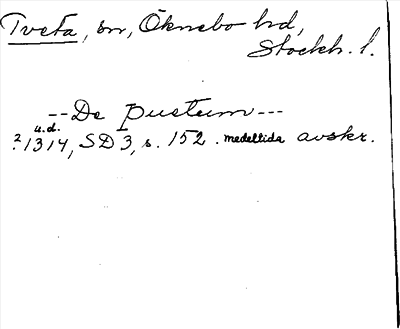 Tveta, sn, Öknebo hd,
Stockh. l.
--De pustum---
u.d.
? 1314, SD 3, s. 152. medeltida avskr.